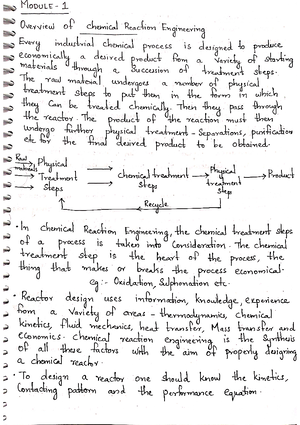 MODULE - 1
Overview of chemical Reaction Engineering
Every industrial chemical process is designed to produce
economically a desired product from a variety of starting
materials through a succession of treatment steps.
The raw material undergoes a number of physical
treatment steps to put them in the form in which
they can be treated chemically. Then they pass through
the reactor. The product of the reaction must then
undergo further physical treatment - Separations, purification
etc for the final desired product to be obtained.
Raw materials
Physical Treatment Steps
chemical treatment Steps
Physical treatment Steps
Product
Recycle
• In chemical Reaction Engineering, the chemical treatment steps
of a process is taken into Consideration. The chemical
treatment step is the heart of the process, the
thing that makes or breaks the process economical.
eg :- Oxidation, Sulphonation etc.
• Reactor design uses information, knowledge, experience
from a variety of areas - thermodynamics, chemical
kinetics, fluid mechanics, heat transfer, Mass transfer and
economics. chemical reaction engineering is the Synthesis
of all these factors with the aim of properly designing
a chemical reactor.
• To design a reactor one should know the kinetics,
Contacting pattern and the performance equation.